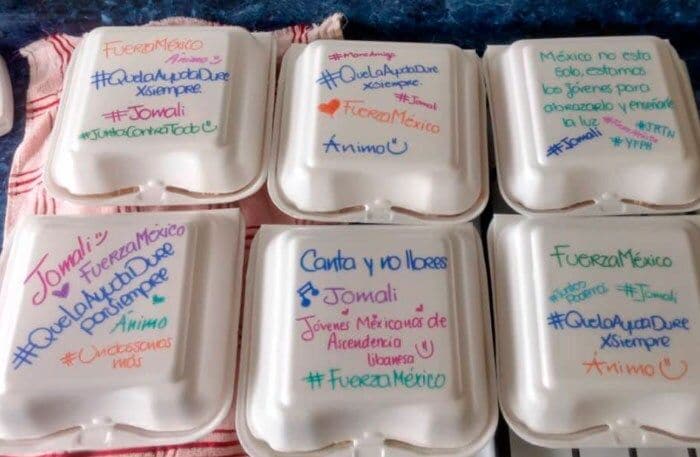 FuerzaMéxico
Ánimo
#QueLaAyudaDure
XSiempre
#Jomali
#JuntoContraTodo
#ManoAmiga
#QueLaAyudaDure
XSiempre
#Jomali
FuerzaMéxico
Ánimo
México no esta
solo, estamos
los jóvenes para
abrazarlo y enseñarle
la luz
#JRTN
#Jomali
#YFPH
Jomali
FuerzaMéxico
#QueLaAyudaDure
porSiempre
Ánimo
#Undossomos
más
Canta y no llores
Jomali
Jóvenes Mexicanos de
Ascendencia
libanesa
#FuerzaMéxico
FuerzaMéxico
#Jomali
#QueLaAyudaDure
XSiempre
Ánimo